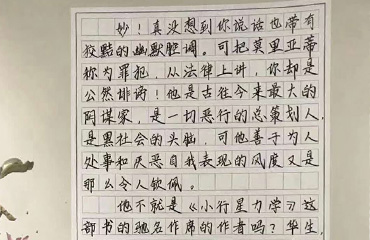 妙！真没想到你说话也带有
狡黠的幽默腔调。可把莫里亚蒂
称为罪犯，从法律上讲，你却是
公然诽谤！他是古往今来最大的
阴谋家，是一切恶行的总策划人，
是黑社会的头脑，可他善于为人
处事和厌恶自我表现的风度又是
那么令人钦佩。
他不就是《小行星力学》这
部书的驰名作席的作者吗？华生，